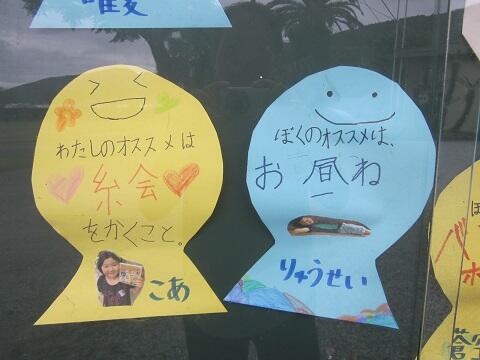 わたしのオススメは
絵
をかくこと。
こあ
ぼくのオススメは、
お昼ね
りゅうせい